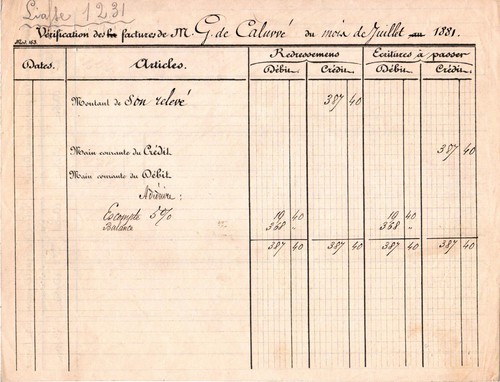 Liasse 1231
Vérification des factures de M. G. de Caluvvé du mois de Juillet au 1881.
Mod. 163.
Dates. Articles. Redressemens Ecritures à passer
Débit. Crédit. Débit. Crédit.
Montant de Son relevé 387 40
Main courante du Crédit. 387 40
Main courante du Débit.
A déduire:
Escompte 5% 19 40 19 40
Balance 368 " 368 "
387 40 387 40 387 40 387 40